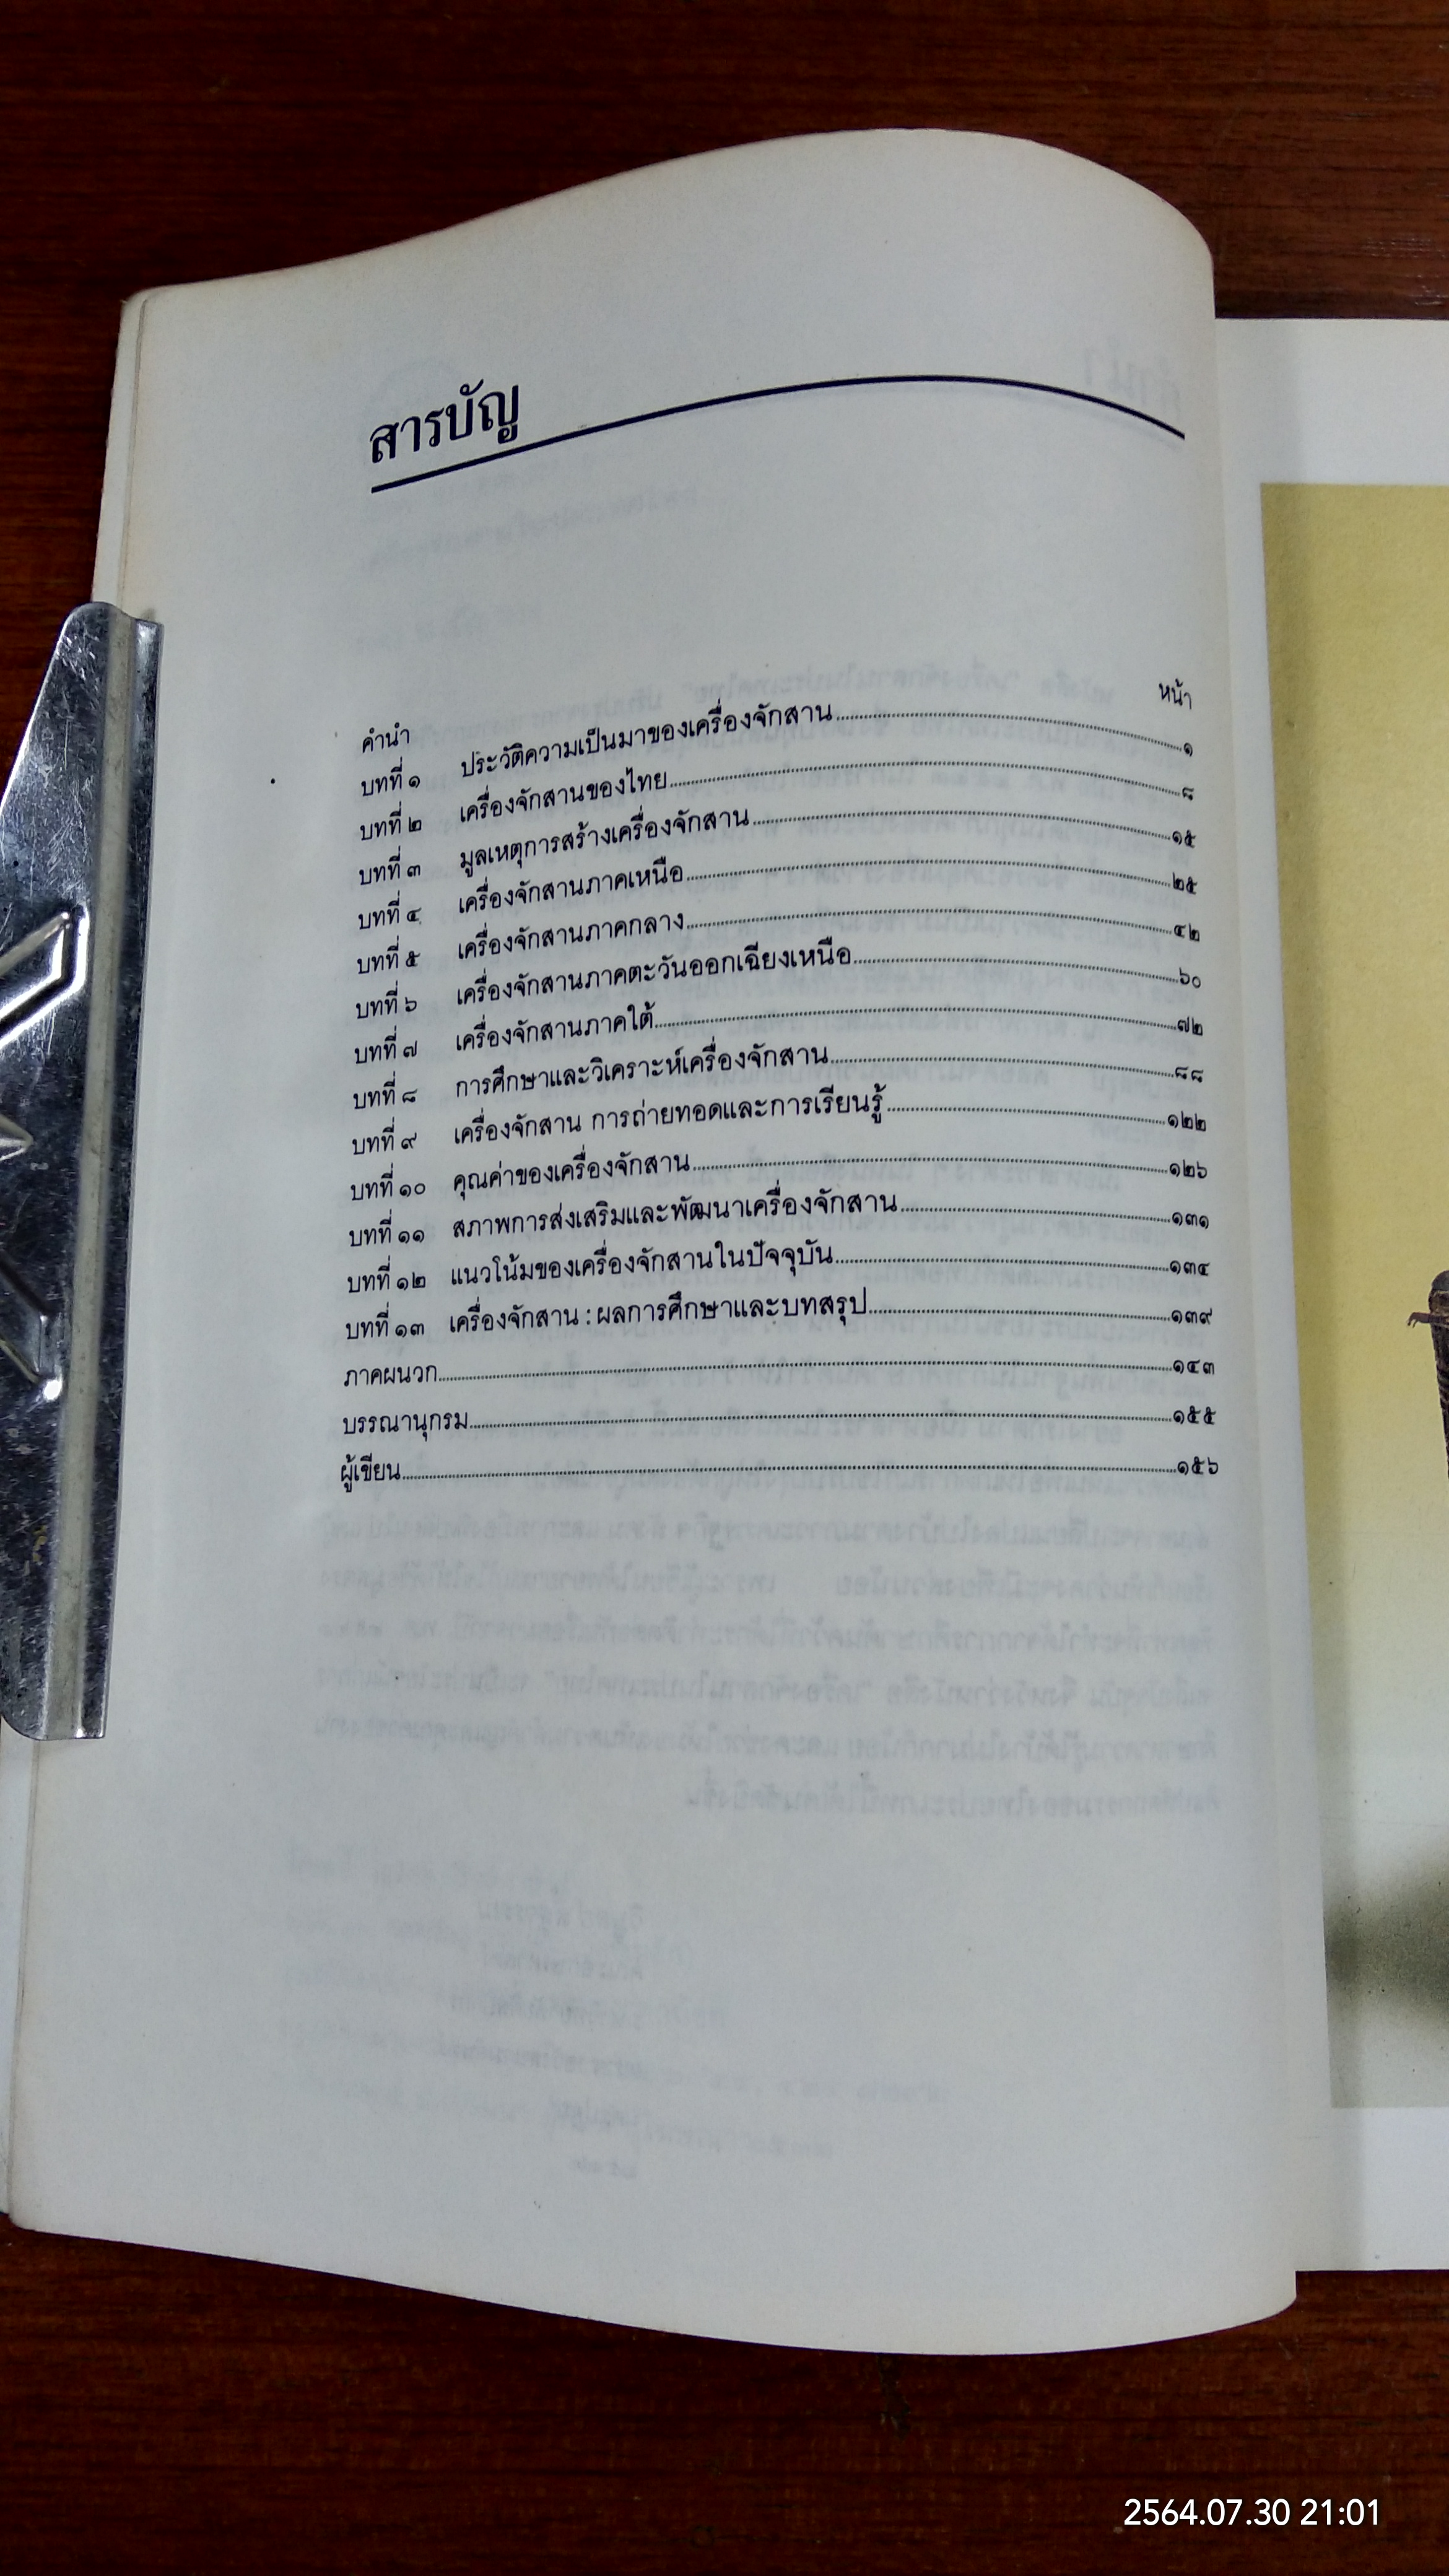 สารบัญ
หน้า
คำนำ
บทที่ ๑ ประวัติความเป็นมาของเครื่องจักสาน ๑
บทที่ ๒ เครื่องจักสานของไทย ๘
บทที่ ๓ มูลเหตุการสร้างเครื่องจักสาน ๑๕
บทที่ ๔ เครื่องจักสานภาคเหนือ ๒๕
บทที่ ๕ เครื่องจักสานภาคกลาง ๔๒
บทที่ ๖ เครื่องจักสานภาคตะวันออกเฉียงเหนือ ๖๐
บทที่ ๗ เครื่องจักสานภาคใต้ ๗๒
บทที่ ๘ การศึกษาและวิเคราะห์เครื่องจักสาน ๘๘
บทที่ ๙ เครื่องจักสาน การถ่ายทอดและการเรียนรู้ ๑๒๒
บทที่ ๑๐ คุณค่าของเครื่องจักสาน ๑๒๖
บทที่ ๑๑ สภาพการส่งเสริมและพัฒนาเครื่องจักสาน ๑๓๑
บทที่ ๑๒ แนวโน้มของเครื่องจักสานในปัจจุบัน ๑๓๔
บทที่ ๑๓ เครื่องจักสาน : ผลการศึกษาและบทสรุป ๑๓๙
ภาคผนวก ๑๔๓
บรรณานุกรม ๑๕๕
ผู้เขียน ๑๕๖
2564.07.30 21:01